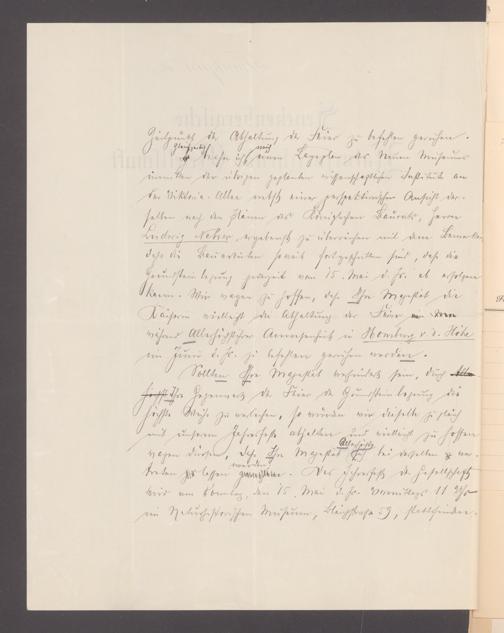 Zeitpunkt der Abhaltung der Feier zu befehlen geruhen.
Gleichzeitig
wir einen Lageplan des Neuen Museums
inmitten der übrigen geplanten wissenschaftlichen Institute an
der Viktoria-Allee nebst einer perspektivischen Ansicht des-
selben nach den Plänen des Königlichen Baurats, Herrn
Ludwig Neher, ergebenst zu überreichen mit dem Bemerken
daß die Bauarbeiten soweit fortgeschritten sind, daß die
Grundsteinlegung jederzeit vom 15. Mai d. Js. ab erfolgen
kann. Wir wagen zu hoffen, daß Ihre Majestät die
Kaiserin vielleicht die Abhaltung der Feier
während Allerhöchstihrer Anwesenheit in Homburg v. d. Höhe
im Juni d. Js. zu befehlen geruhen werden.
Sollten Ihre Majestät verhindert sein, durch
Ihre Gegenwart der Feier der Grundsteinlegung die
höchste Weihe zu verleihen, so würden wir dieselbe zugleich
mit unserem Jahresfeste abhalten und vielleicht zu hoffen
wagen dürfen, daß Ihre Majestät Allerhöchst sich bei derselben ver-
treten zu lassen geruhen werden. Das Jahresfest der Gesellschaft
wird am Sonntag, den 15. Mai d. Js. Vormittags 11 Uhr
im Naturhistorischen Museum, Bleichstraße 59, stattfinden.